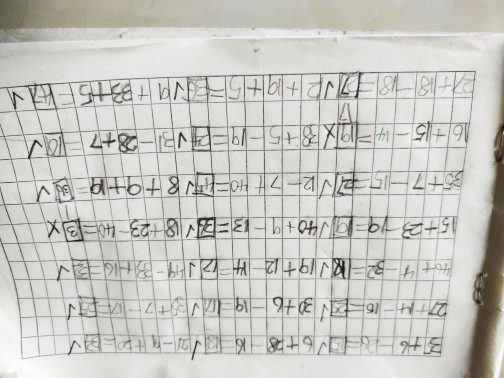 35+6-26=15√ 6+28-16=18√ 21-9+20=32√
27+14-16=25√ 30+6-19=17√ 35+7-17=25√
40+4-32=12√ 19+12-14=17√
15+23-19=19√ 40+9-13=36√ 18+23-40=3×
35+7-15=27√ 12-7+40=45√ 8+9+19=36√
16+15-14=19× 38+5-19=24√ 31-28+7=10√
27+18-18=27√ 12+19+5=36√ 19+33-5=47√